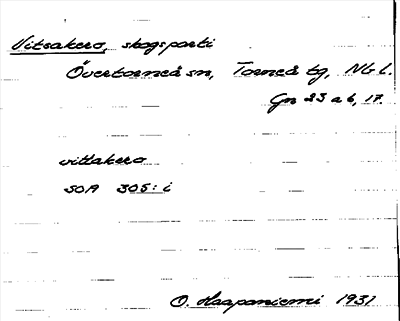 Vitsakero, skogsparti
Övertorneå sn, Torneå tg, Nb l.
Gn 23 a b, 17.
vittakero
SOA 305: i
O. Haapaniemi 1931